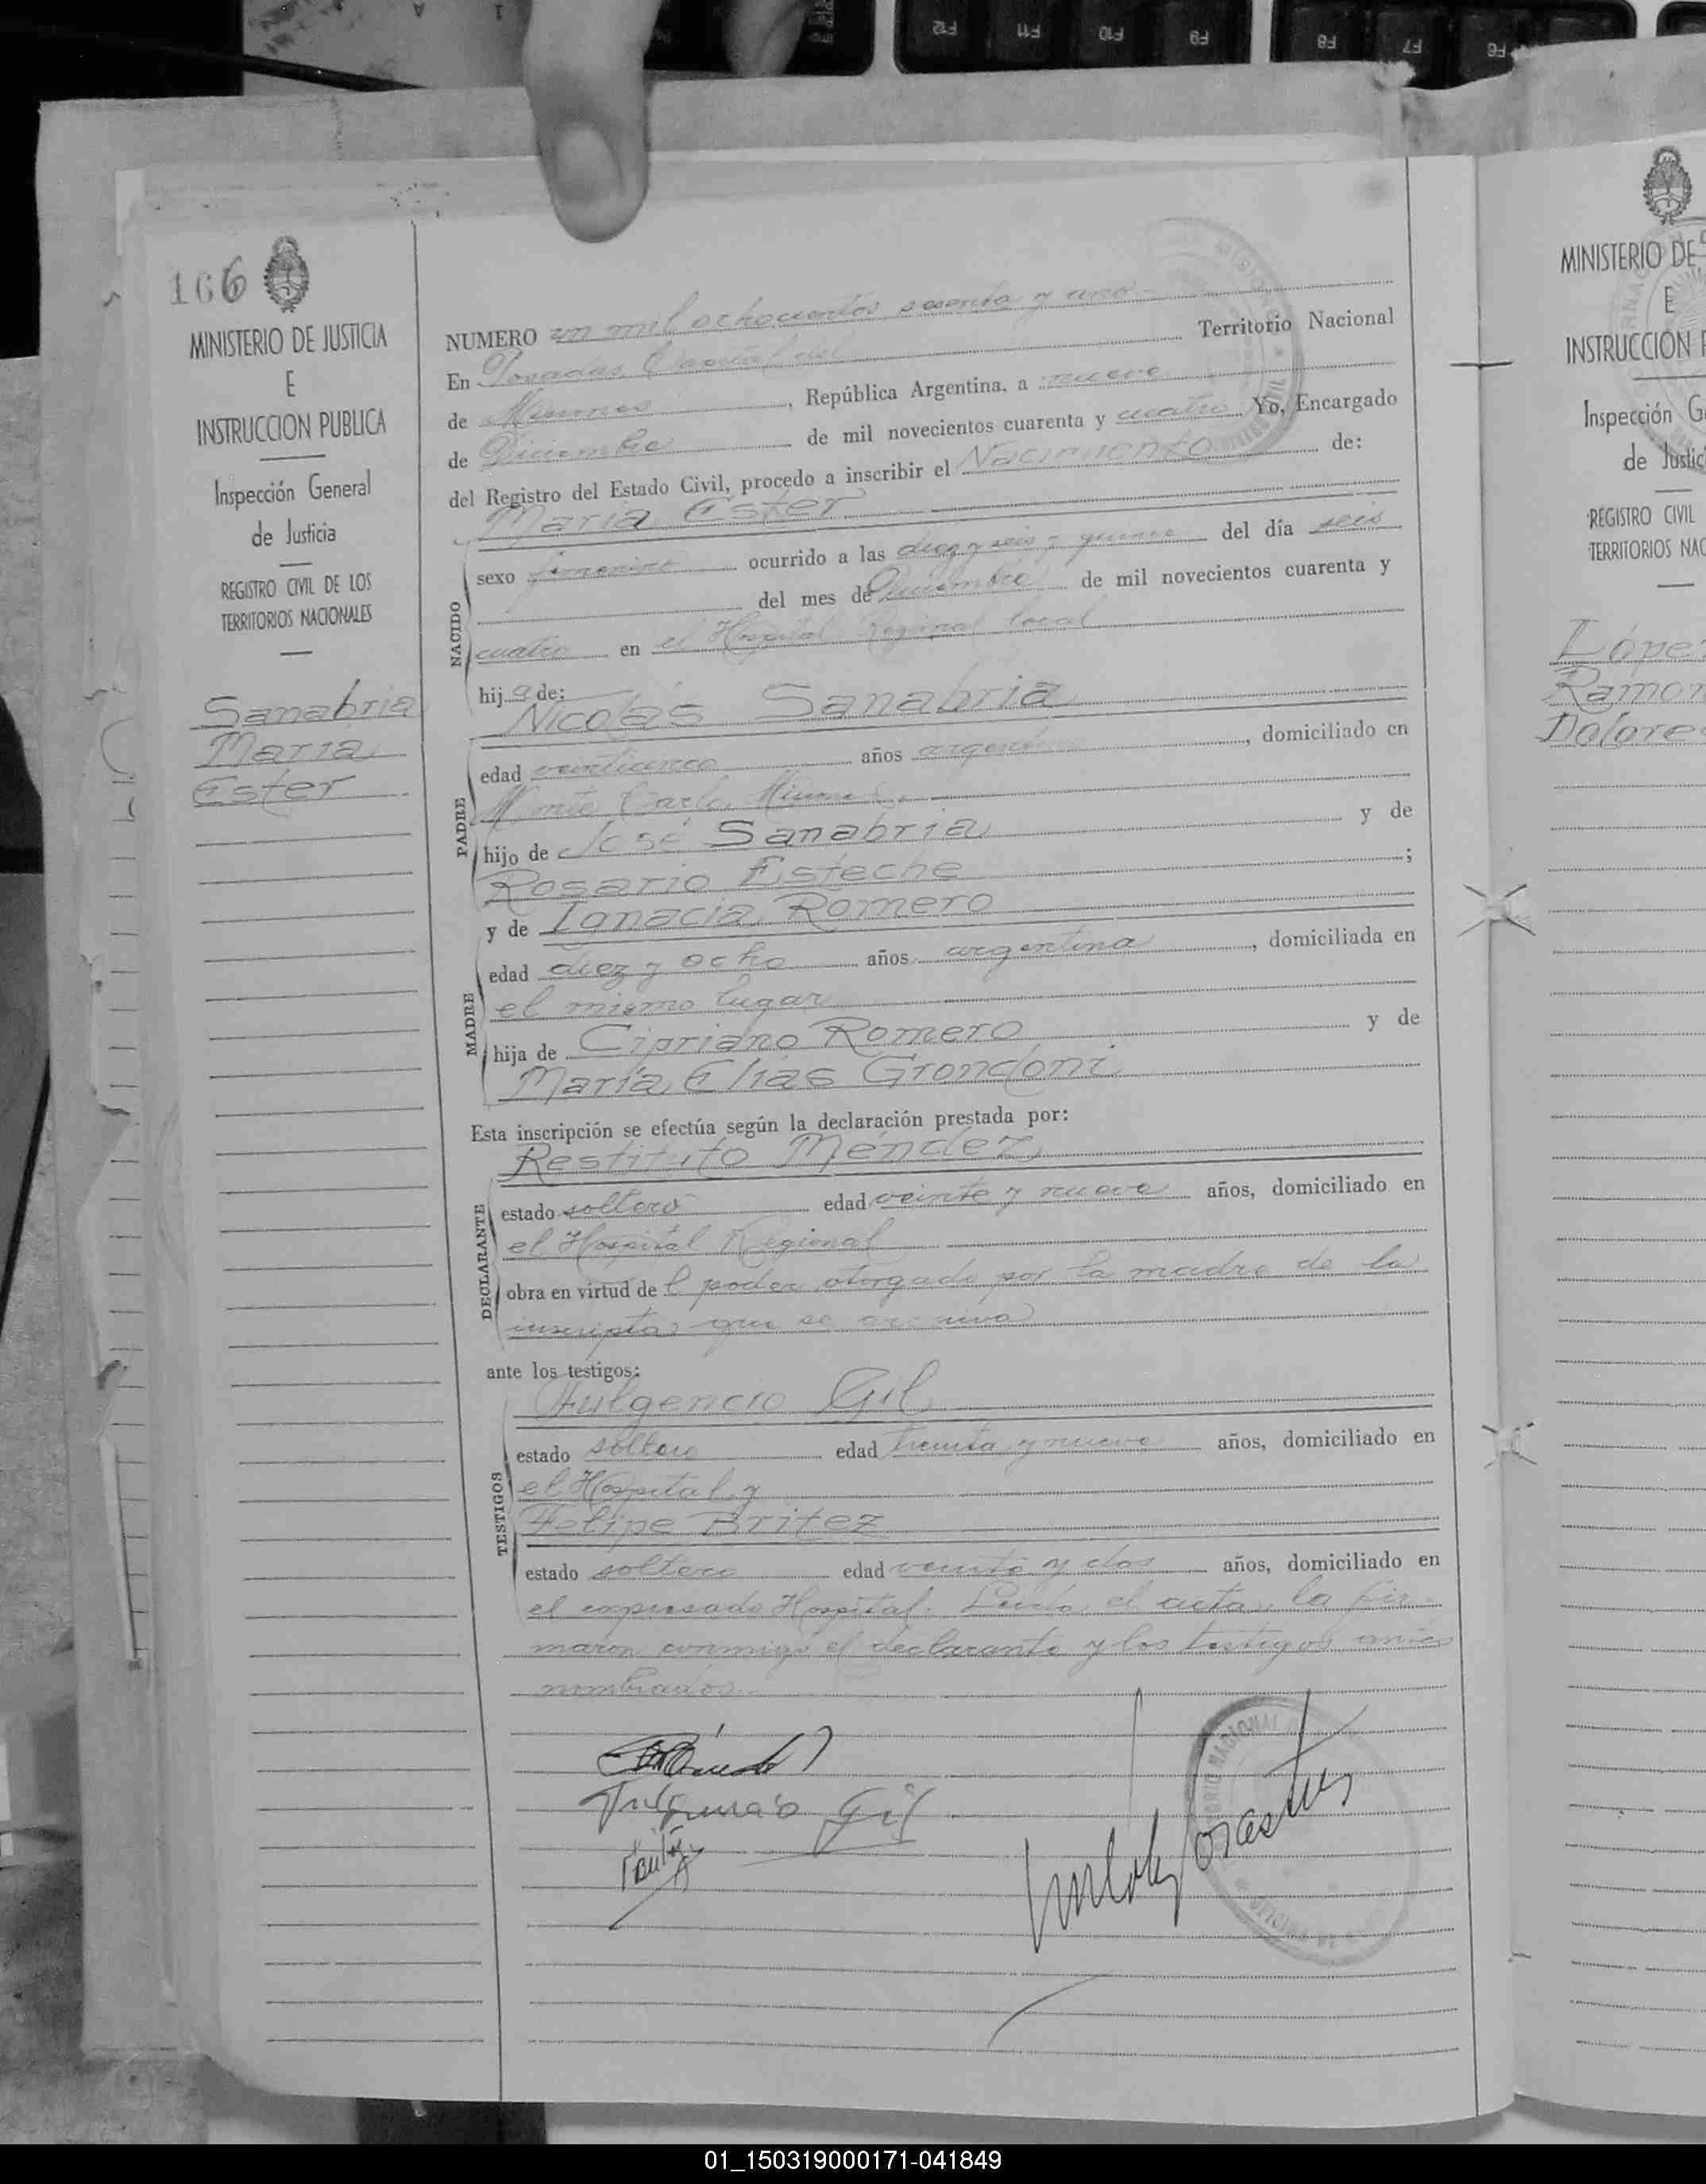 F12 F11 F10 F9 F8 F7 F6
166
MINISTERIO DE JUSTICIA
E
INSTRUCCION PUBLICA
Inspección General
de Justicia
REGISTRO CIVIL DE LOS
TERRITORIOS NACIONALES
Sanabria
María
Ester
NUMERO un mil ochocientos sesenta y uno
En Posadas, Capital del Territorio Nacional
de Misiones, República Argentina, a nueve
de Diciembre de mil novecientos cuarenta y cuatro Yo, Encargado
del Registro del Estado Civil, procedo a inscribir el Nacimiento de:
María Ester
NACIDO
sexo femenino ocurrido a las diez y seis y quince del día seis
del mes de Diciembre de mil novecientos cuarenta y
cuatro en el Hospital Regional local
hija de:
Nicolás Sanabria
PADRE
edad veinticinco años argentino, domiciliado en
Monte Carlo, Misiones
hijo de José Sanabria y de
Rosario Esteche ;
y de Ignacia Romero
MADRE
edad diez y ocho años argentina, domiciliada en
el mismo lugar
hija de Cipriano Romero y de
María Elías Grondoni
Esta inscripción se efectúa según la declaración prestada por:
Restituto Méndez
DECLARANTE
estado soltero edad veinte y nueve años, domiciliado en
el Hospital Regional
obra en virtud del poder otorgado por la madre de la
inscripta, que se archiva
ante los testigos:
Fulgencio Gil
TESTIGOS
estado soltero edad treinta y nueve años, domiciliado en
el Hospital y
Felipe Britez
estado soltero edad veinte y dos años, domiciliado en
el expresado Hospital. Leída el acta, la fir
maron conmigo el declarante y los testigos antes
nombrados.
Fulgencio Gil
MINISTERIO DE
E
INSTRUCCION P
Inspección G
de Justic
REGISTRO CIVIL
TERRITORIOS NAC
López
Ramon
Dolores
01_150319000171-041849